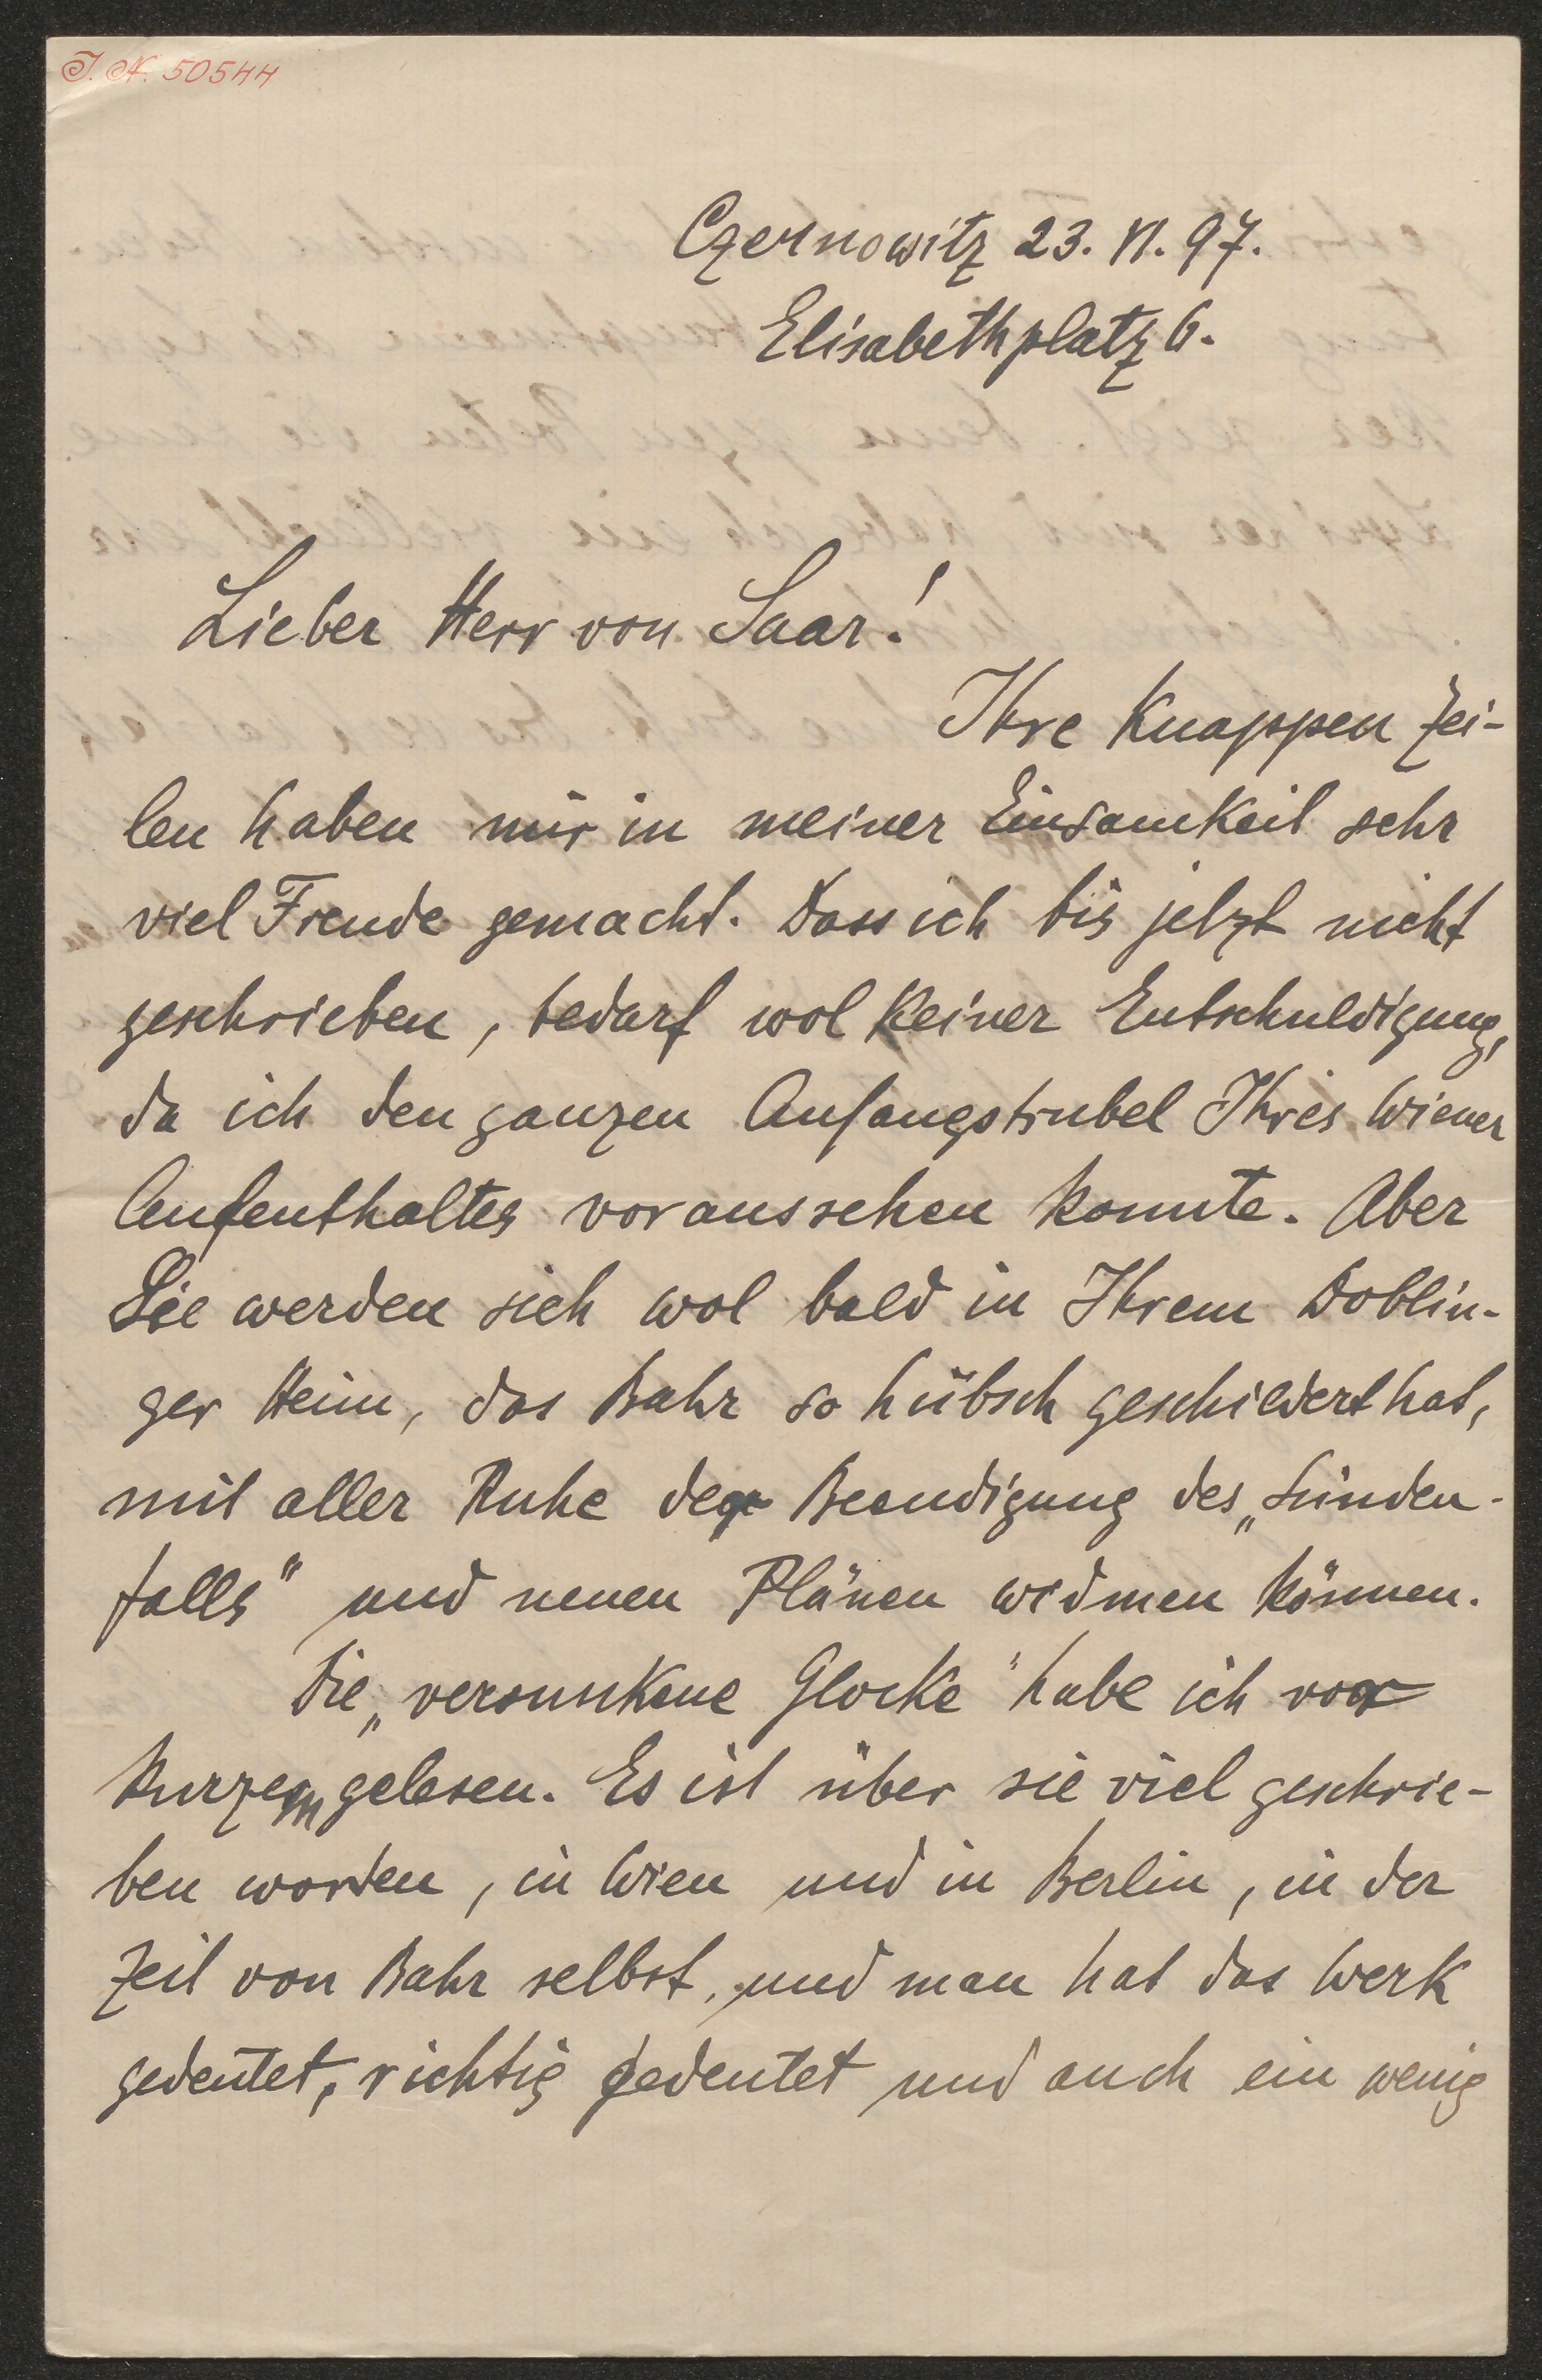 J. N. 50544
Czernowitz 23. VI. 97.
Elisabethplatz 6.
Lieber Herr von Saar!
Ihre knappen Zei-
len haben mir in meiner Einsamkeit sehr
viel Freude gemacht. Dass ich bis jetzt nicht
geschrieben, bedarf wol keiner Entschuldigung,
da ich den ganzen Anfangstrubel Ihres Wiener
Aufenthaltes voraussehen konnte. Aber
Sie werden sich wol bald in Ihrem Döblin-
ger Heim, das Bahr so hübsch geschildert hat,
mit aller Ruhe der Beendigung des „Sünden-
falls" und neuen Plänen widmen können.
Die „versunkene Glocke" habe ich vor
kurzem gelesen. Es ist über sie viel geschrie-
ben worden, in Wien und in Berlin, in der
Zeit von Bahr selbst, und man hat das Werk
gedeutet, richtig gedeutet und auch ein wenig